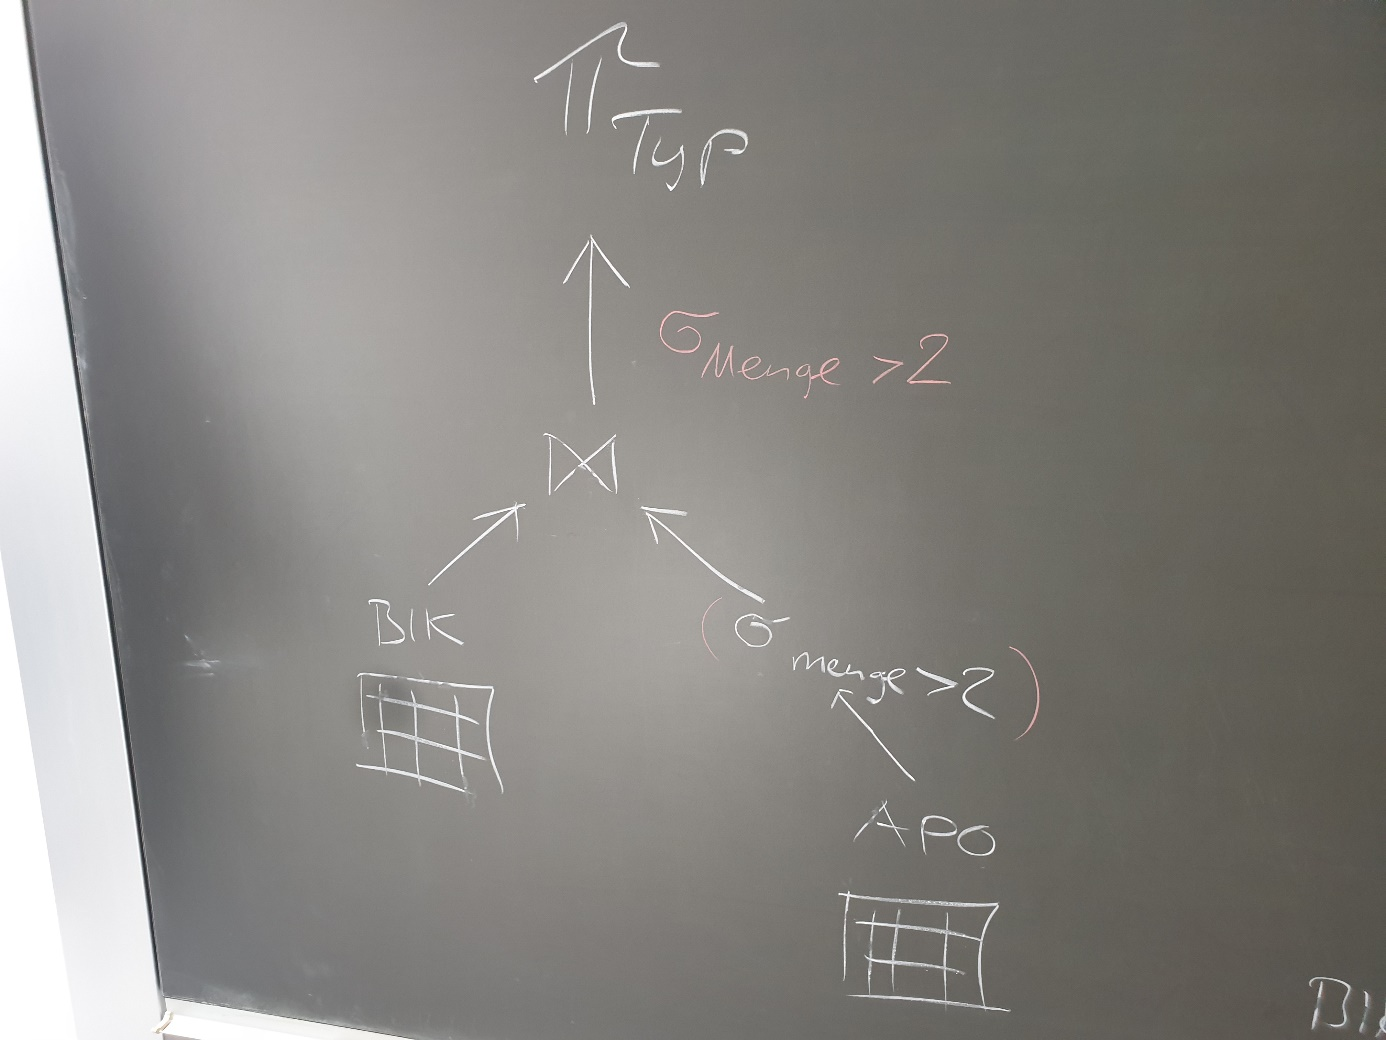 π Typ
σ Menge > 2
⋈
BIK
(σ menge > 2)
APO